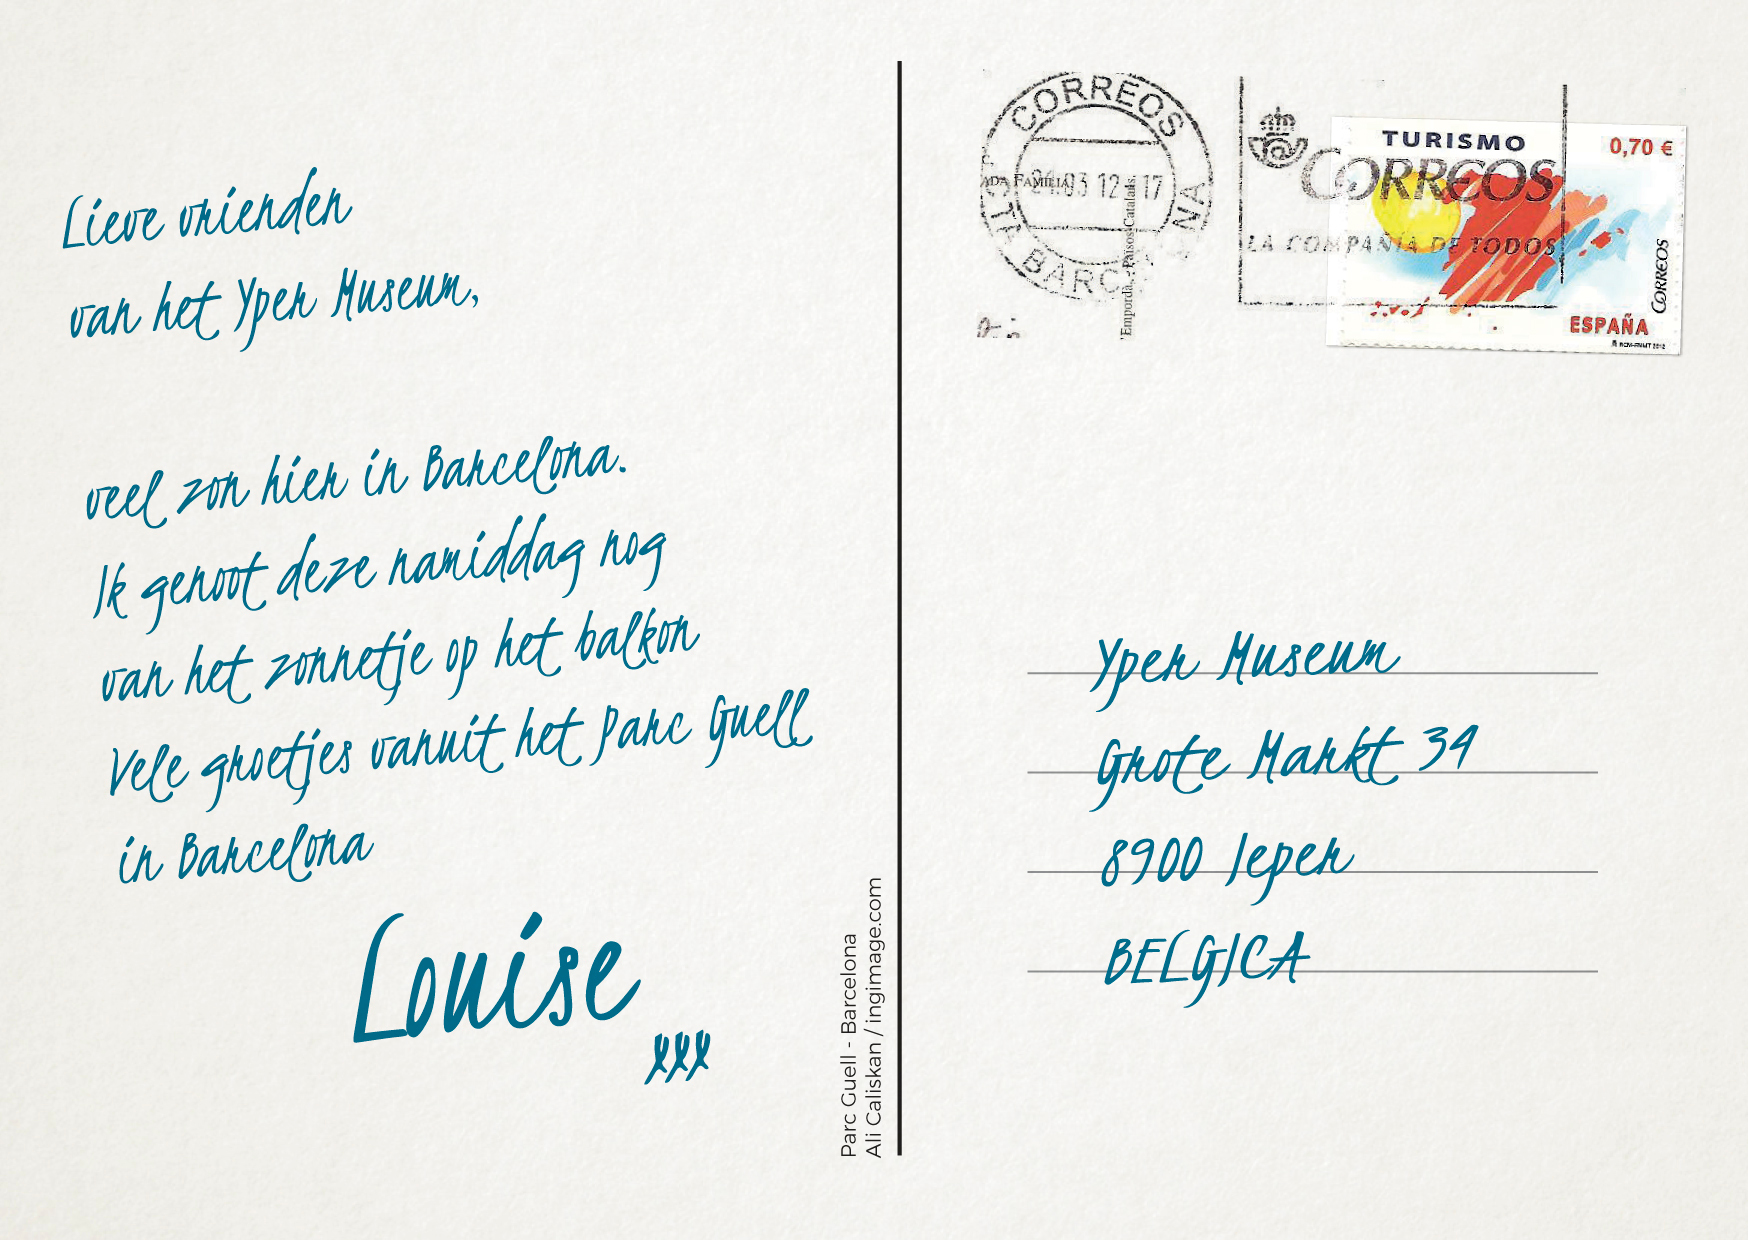 Lieve vrienden
van het Yper Museum,
veel zon hier in Barcelona.
Ik genoot deze namiddag nog
van het zonnetje op het balkon
Vele groetjes vanuit het Parc Guell
in Barcelona
Louise
xxx
Parc Guell - Barcelona
Ali Caliskan / ingimage.com
CORREOS
BARC
ANA
FAMILIA
03 12 17
Països Catalans.
CORREOS
LA COMPAÑIA DE TODOS
TURISMO
0,70 €
CORREOS
ESPAÑA
RCM-FNMT 2012
Yper Museum
Grote Markt 34
8900 Ieper
BELGICA